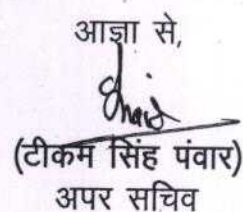 आज्ञा से,
(टीकम सिंह पंवार)
अपर सचिव